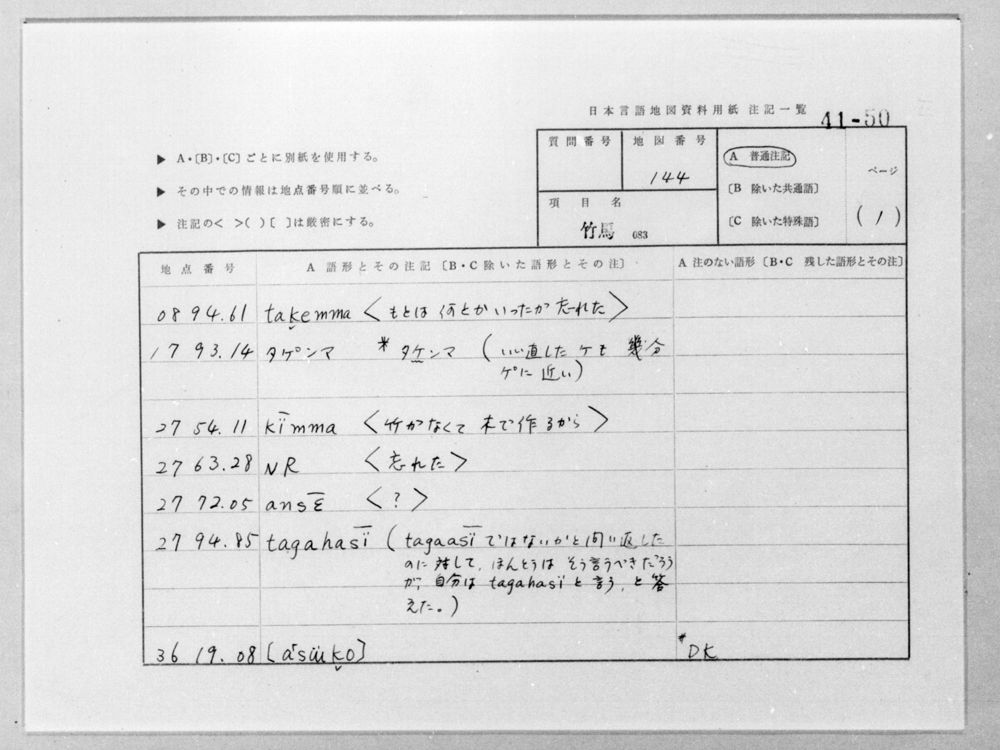 日本言語地図資料用紙 注記一覧
41-50
▶ A・〔B〕・〔C〕ごとに別紙を使用する。
▶ その中での情報は地点番号順に並べる。
▶ 注記の< >( )[ ]は厳密にする。
質問番号 地図番号
144
項目名
竹馬 083
A 普通注記
〔B 除いた共通語〕
〔C 除いた特殊語〕
ページ
(1)
地点番号 A 語形とその注記〔B・C 除いた語形とその注〕 A 注のない語形〔B・C 残した語形とその注〕
08 94.61 tak̬emma <もとは何とかいったが忘れた>
17 93.14 タケ゚ンマ * タケンマ (いい直したケも幾分
ケ゚に近い)
27 54.11 kï̅mma <竹がなくて木で作るから>
27 63.28 NR <忘れた>
27 72.05 ansɛ̅ <?>
27 94.85 tagahasï̅ (tagaasï̅ ではないかと問い返した
のに対して、ほんとうはそう言うべきだろう
が、自分は tagahasï と言う、と答
えた。)
36 19.08 [aˢsüük̬o] *DK